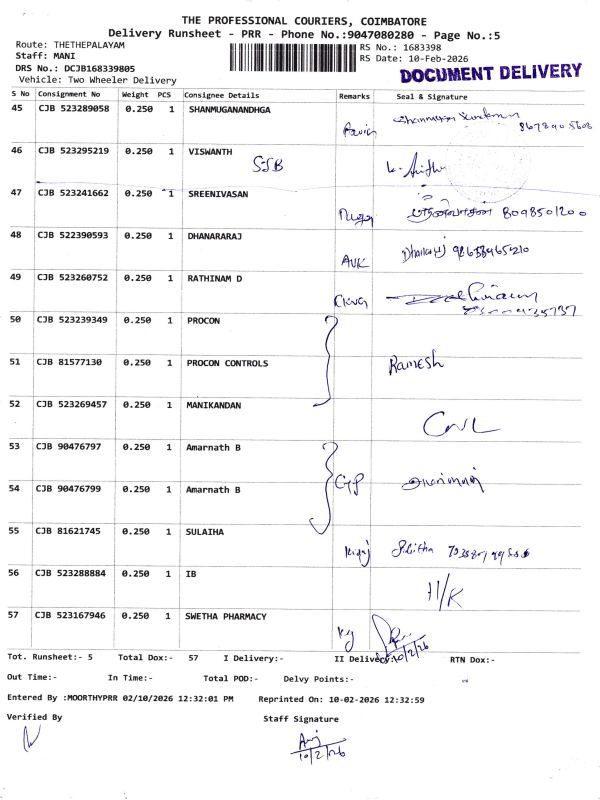 THE PROFESSIONAL COURIERS, COIMBATORE
Delivery Runsheet - PRR - Phone No.:9047080280 - Page No.:5
Route: THETHEPALAYAM
Staff: MANI
DRS No.: DCJB168339805
Vehicle: Two Wheeler Delivery
RS No.: 1683398
RS Date: 10-Feb-2026
DOCUMENT DELIVERY
S No Consignment No Weight PCS Consignee Details Remarks Seal & Signature
45 CJB 523289058 0.250 1 SHANMUGANANDHGA
46 CJB 523295219 0.250 1 VISWANTH
SSB
47 CJB 523241662 0.250 1 SREENIVASAN 8098501200
48 CJB 522390593 0.250 1 DHANARARAJ
AVK
49 CJB 523260752 0.250 1 RATHINAM D
50 CJB 523239349 0.250 1 PROCON
51 CJB 81577130 0.250 1 PROCON CONTROLS Ramesh
52 CJB 523269457 0.250 1 MANIKANDAN
53 CJB 90476797 0.250 1 Amarnath B
54 CJB 90476799 0.250 1 Amarnath B
55 CJB 81621745 0.250 1 SULAIHA
56 CJB 523288884 0.250 1 IB H/K
57 CJB 523167946 0.250 1 SWETHA PHARMACY
10/2/26
Tot. Runsheet:- 5 Total Dox:- 57 I Delivery:- II Delivery:- RTN Dox:-
Out Time:- In Time:- Total POD:- Delvy Points:-
Entered By :MOORTHYPRR 02/10/2026 12:32:01 PM Reprinted On: 10-02-2026 12:32:59
Verified By Staff Signature
10/2/26